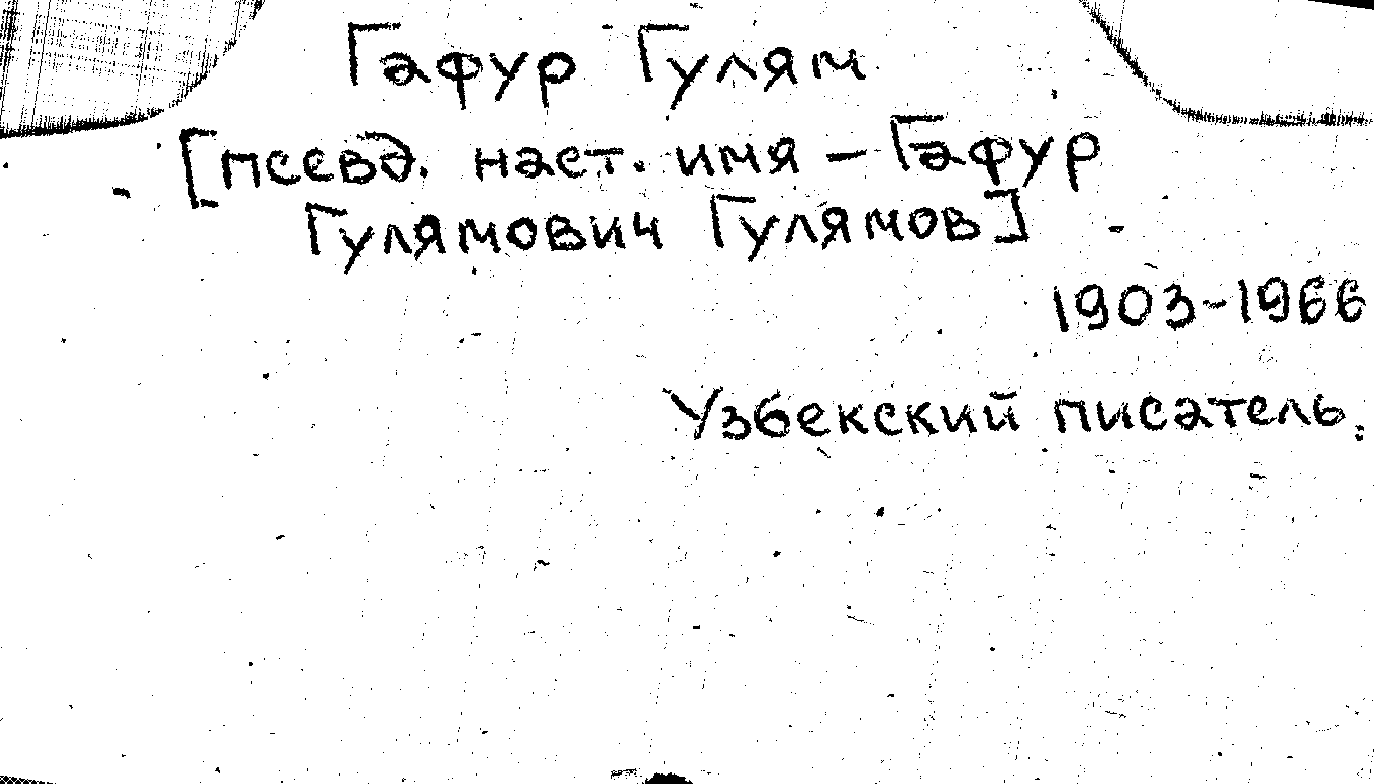 Гафур Гулям
[псевд. наст. имя – Гафур
Гулямович Гулямов]
1903-1966
Узбекский писатель.